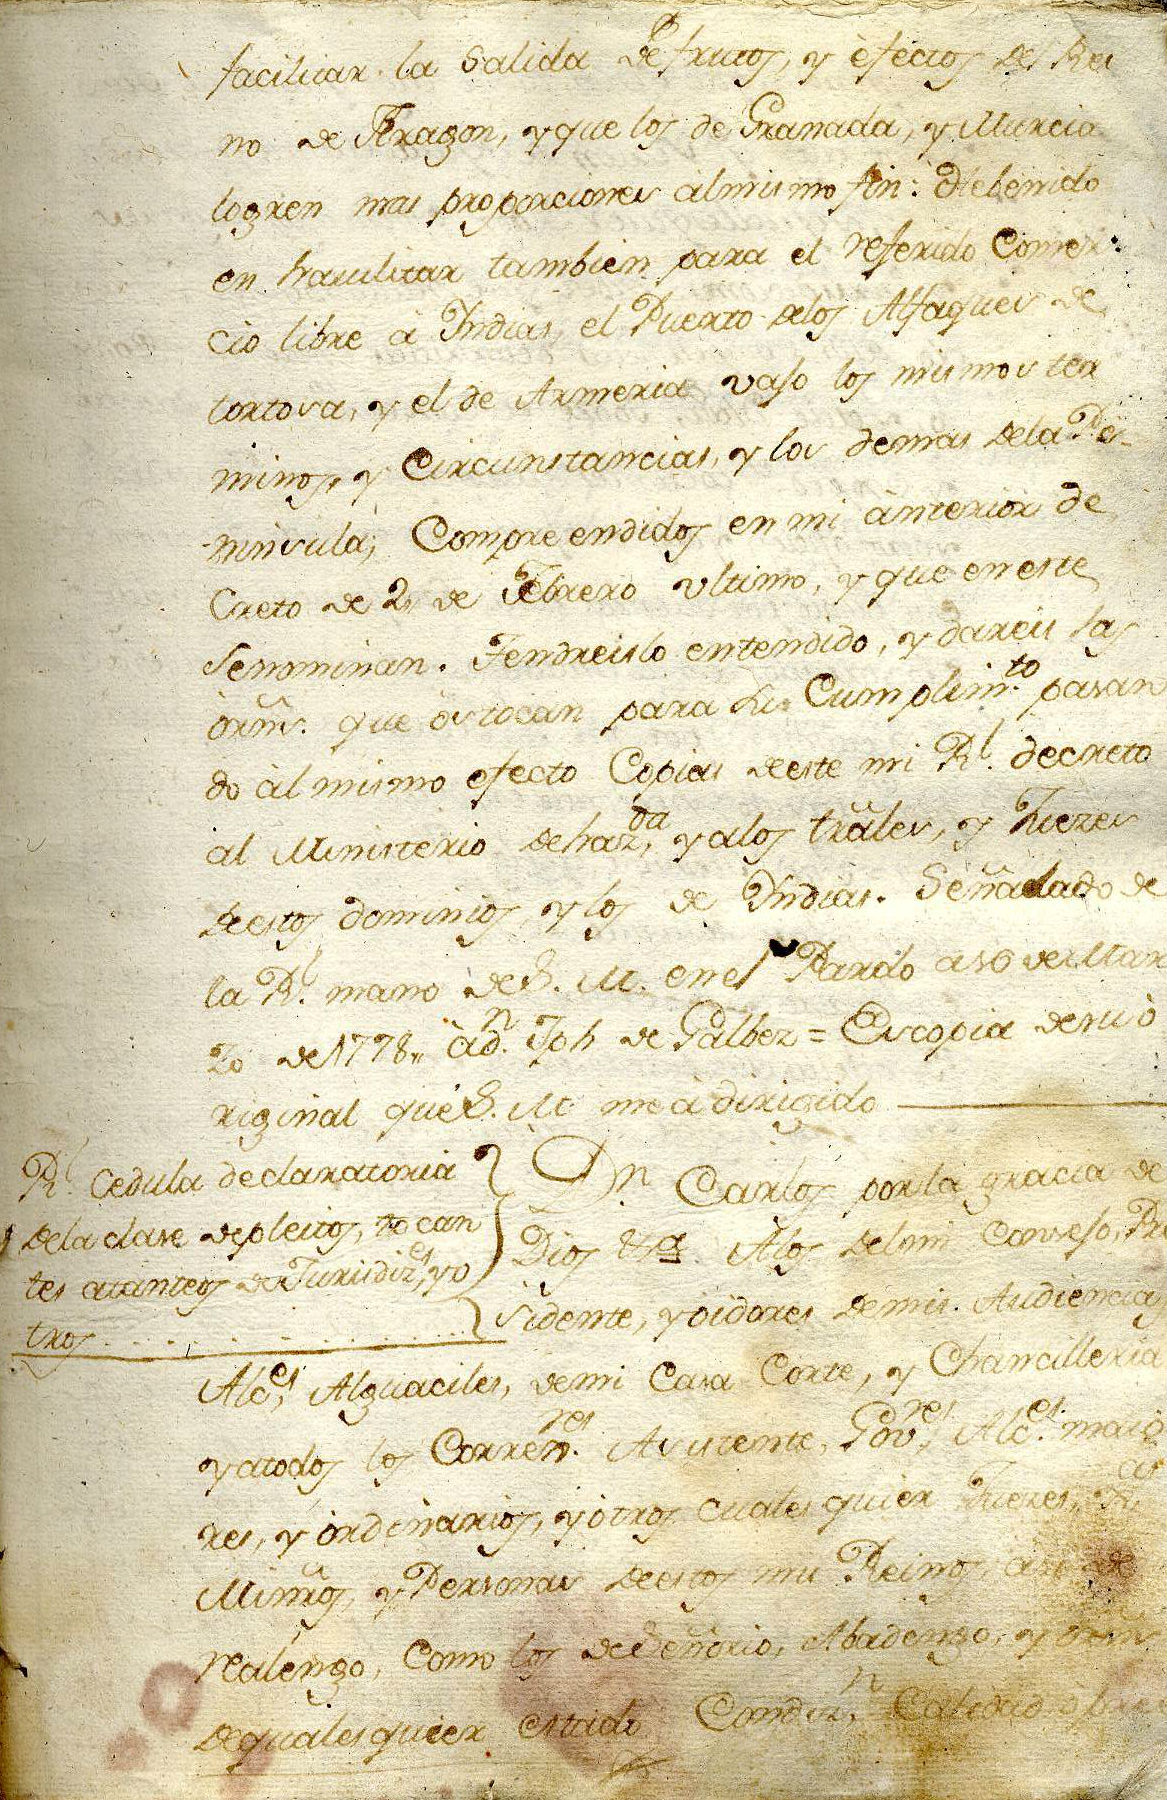 facilitar la Salida de frutos, y efectos del Rei
no de Aragon, y que los de Granada, y Murcia
logren mas proporciones àlmismo fin: He benido
en havilitar tambien para el referido Comer
cio libre à Yndias, el Puerto delos Alfaques de
tortosa, y el de Armeria vajo los mismos ter
minos, y Circunstancias, y los demas dela Pe-
ninsula, Compreendidos en mi ànterior de
Creto de 2, de Febrero ultimo, y que en este
Senominan. Tendreislo entendido, y dareis las
òrns. que òs tocan para su Cumplim.to pasan
do àl mismo efecto Copias deeste mi Rl. decreto
al Ministerio de haz.da, y alos trâles, y Juezes
deestos dominios, y los de Yndias. Señalado de
la Rl. mano de S. M. en el Pardo a 16 de Mar
zo de 1778,, à dn. Jph de Galbez = Es copia de su ò
riginal que S. M. me à dirigido
Rl. Cedula declaratoria
dela clase depleitos, tocan
tes atanteos de Jurisdizes, yo
tros
Dn Carlos por la gracia de
Dios &ra Alos delmi Consejo, Pre
sidente, y oidores demis Audiencias
Alces, Alguaciles, demi Casa Corte, y Chancilleria
y atodos los Correxres. Asistente, Govres, Alces. maio
res, y òrdinarios, y òtros cuales quier Juezes,
Minrôs, y Personas deestos mis Reinos, asi de
realengo, como los de Señorio, Abadengo, y òrdns
de quales quier estado Condizn, Calidad